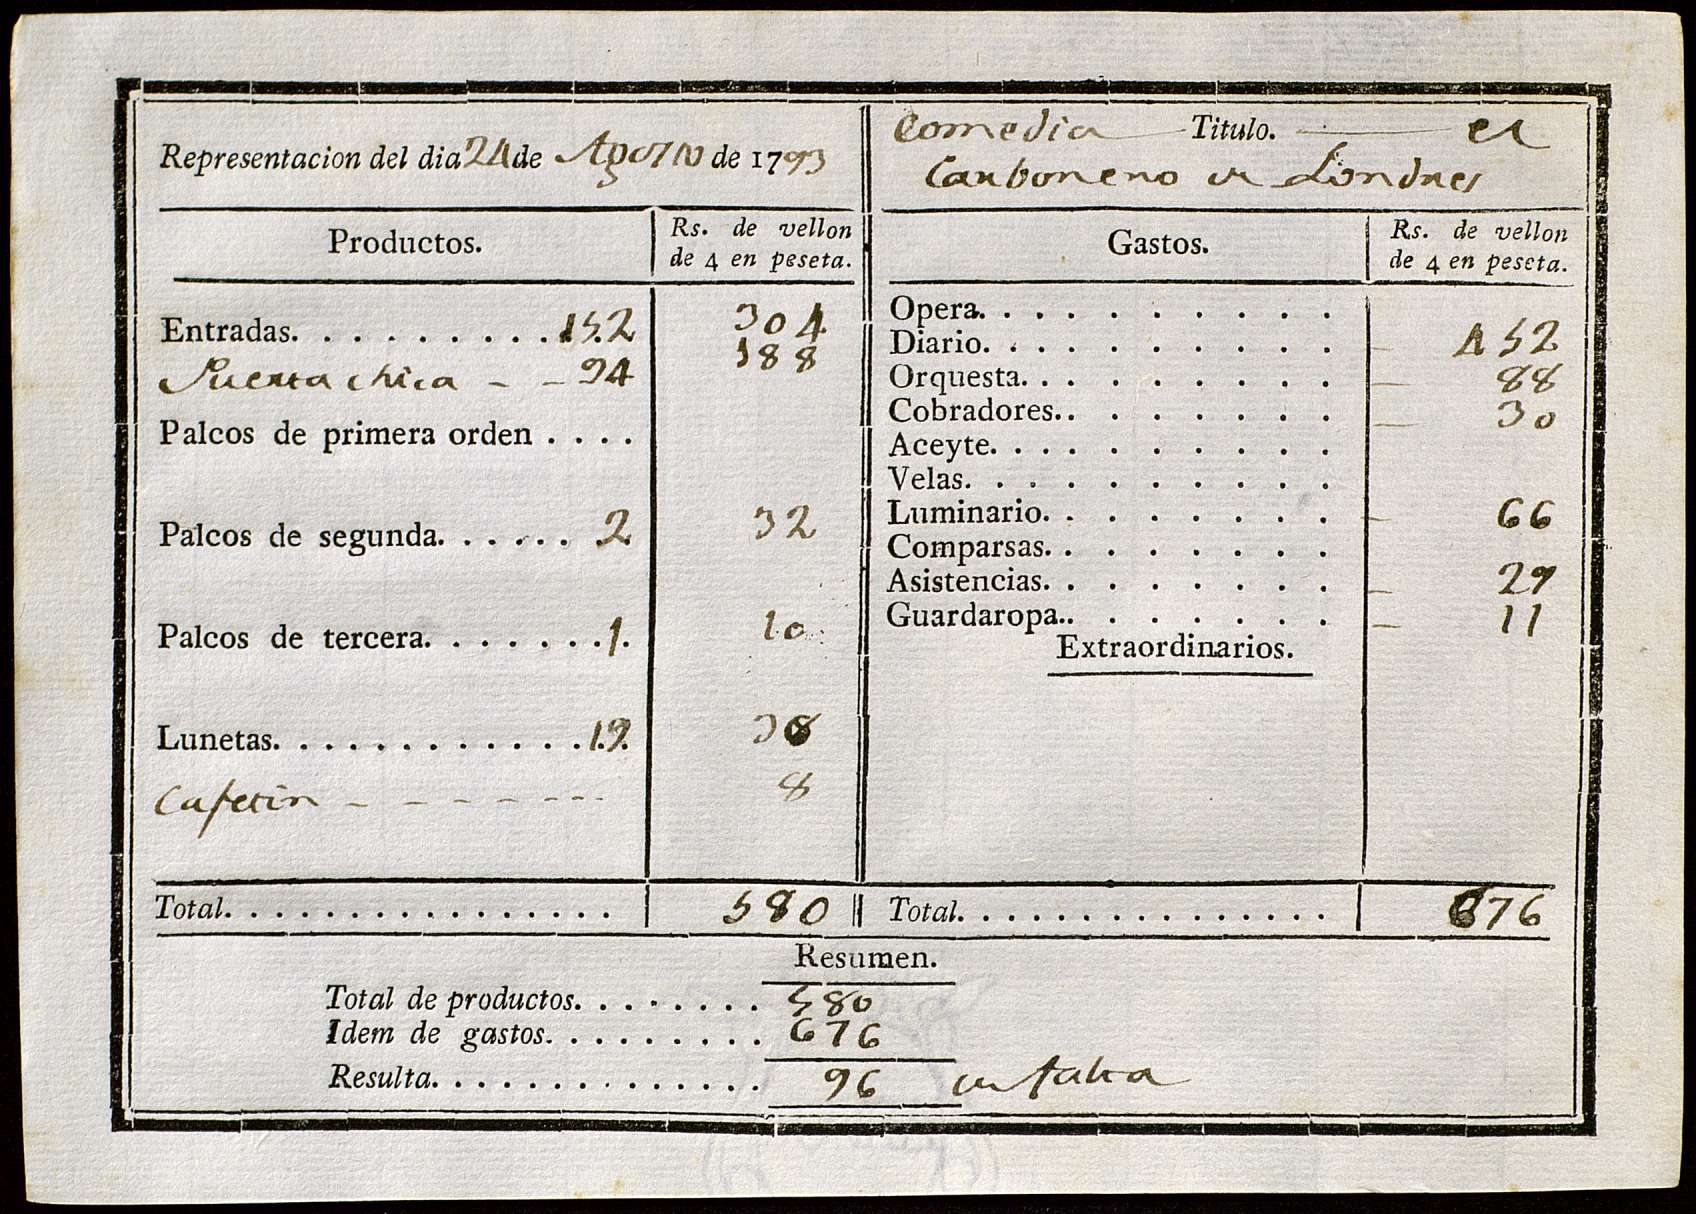 Representacion del dia 24 de Agosto de 1793
Comedia Titulo. el
Carbonero de Londres
Productos.
Rs. de vellon
de 4 en peseta.
Entradas. . . . . . . . . . 152 304
Puerta chica - - 94 188
Palcos de primera orden . . . .
Palcos de segunda. . . . . . 2 32
Palcos de tercera. . . . . . . 1. 10
Lunetas. . . . . . . . . . . . . 19. 38
Cafetin - - - - - - - 8
Total. . . . . . . . . . . . . . . . 580
Gastos.
Rs. de vellon
de 4 en peseta.
Opera. . . . . . . . . .
Diario. . . . . . . . . . 452
Orquesta. . . . . . . . . 88
Cobradores. . . . . . . . 30
Aceyte. . . . . . . . . .
Velas. . . . . . . . . .
Luminario. . . . . . . . 66
Comparsas. . . . . . . .
Asistencias. . . . . . . . 29
Guardaropa. . . . . . . . 11
Extraordinarios.
Total. . . . . . . . . . . . . . . 676
Resumen.
Total de productos. . . . . . . . 580
Idem de gastos. . . . . . . . . 676
Resulta. . . . . . . . . . . . . . 96 en falta